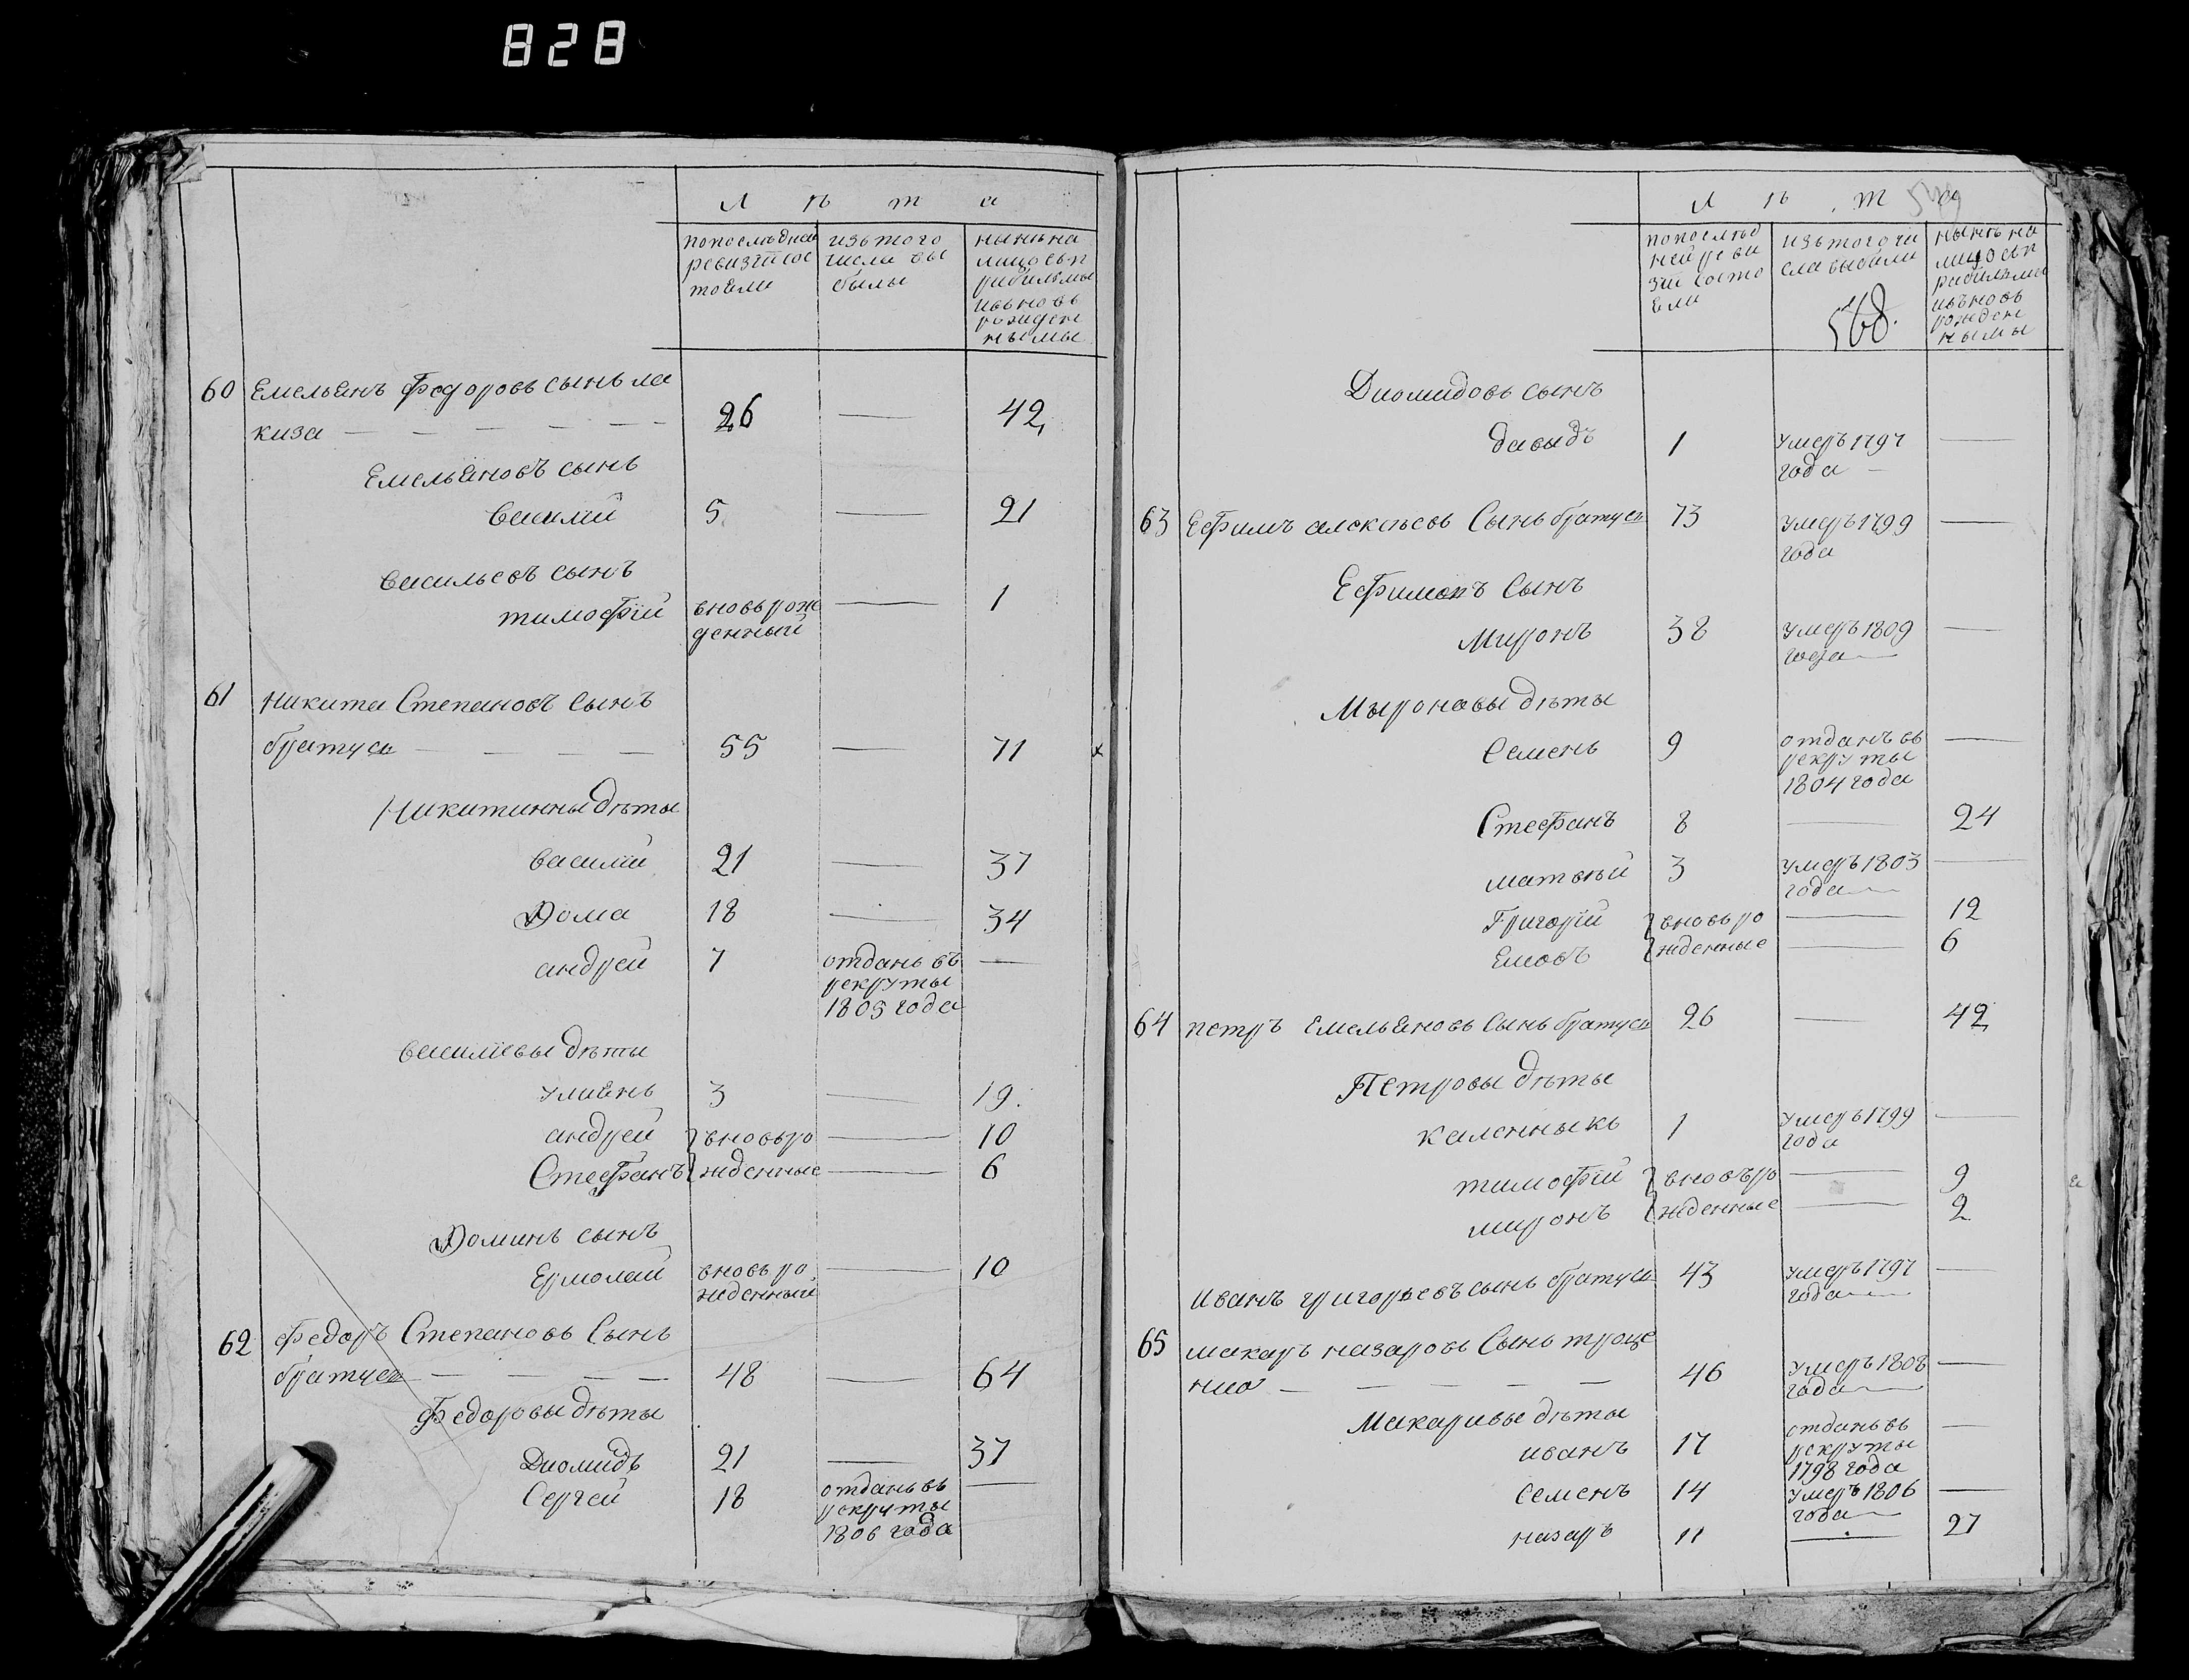 828
Л ѣ т а
попослѣдней
ревизіи сос
тоели
изътого
числа вы
былы
нынѣ на
лицо съп
рибилымы
ивъновь
рожден
нымы
60 Емельянъ Федоровъ сынъ ла
киза — — — — — — 26 — 42
Емельяновъ сынъ
василій 5 — 21
васильевъ сынъ
тимофій вновь рож
денный — 1
61 никита Степановъ сынъ
братусь — — — — 55 — 71
Никитины дѣты
василій 21 — 37
Фома 18 — 34
андрей 7 отданъ въ
рекруты
1805 года —
василіевы дѣты
улиянъ 3 — 19
андрей вновьро — 10
Стефанъ жденные — 6
Фоминъ сынъ
Ермолай вновь ро
жденный — 10
62 Федоръ Степановъ Сынъ
братусь — — — — 48 — 64
Федоровы дѣты
Диомидъ 21 — 37
Сергей 18 отданъ въ
рекруты
1806 года —
Л ѣ т а
попослѣд
ней реви
зіи состо
ели
изътого чи
сла выбили
568.
нынѣ на
лицо съп
рибилыми
ивъновь
рожден
нымы
Диомидовъ сынъ
давыдъ 1 умеръ 1797
года —
63 Ефимъ алексѣевъ Сынъ братусь 73 умеръ 1799
года —
Ефимовъ Сынъ
Миронъ 38 умеръ 1809
года —
Мыроновы дѣты
Семенъ 9 отданъ въ
рекруты
1804 года —
Стефанъ 8 — 24
матвѣй 3 умеръ 1803
года —
Григорій вновь ро — 12
Еловъ жденные — 6
64 петръ Емельяновъ Сынъ братусь 26 — 42
Петровы дѣты
каленныкъ 1 умеръ 1799
года —
тимофій вновъро — 9
миронъ жденные — 2
иванъ григорьевъ сынъ братусь 43 умеръ 1797
года —
65 макаръ назаровъ Сынъ троце
нко — — — — — 46 умеръ 1808
года —
Макаровы дѣты
иванъ 17 отданъ въ
рекруты
1798 года —
семенъ 14 умеръ 1806
года —
назаръ 11 — 27